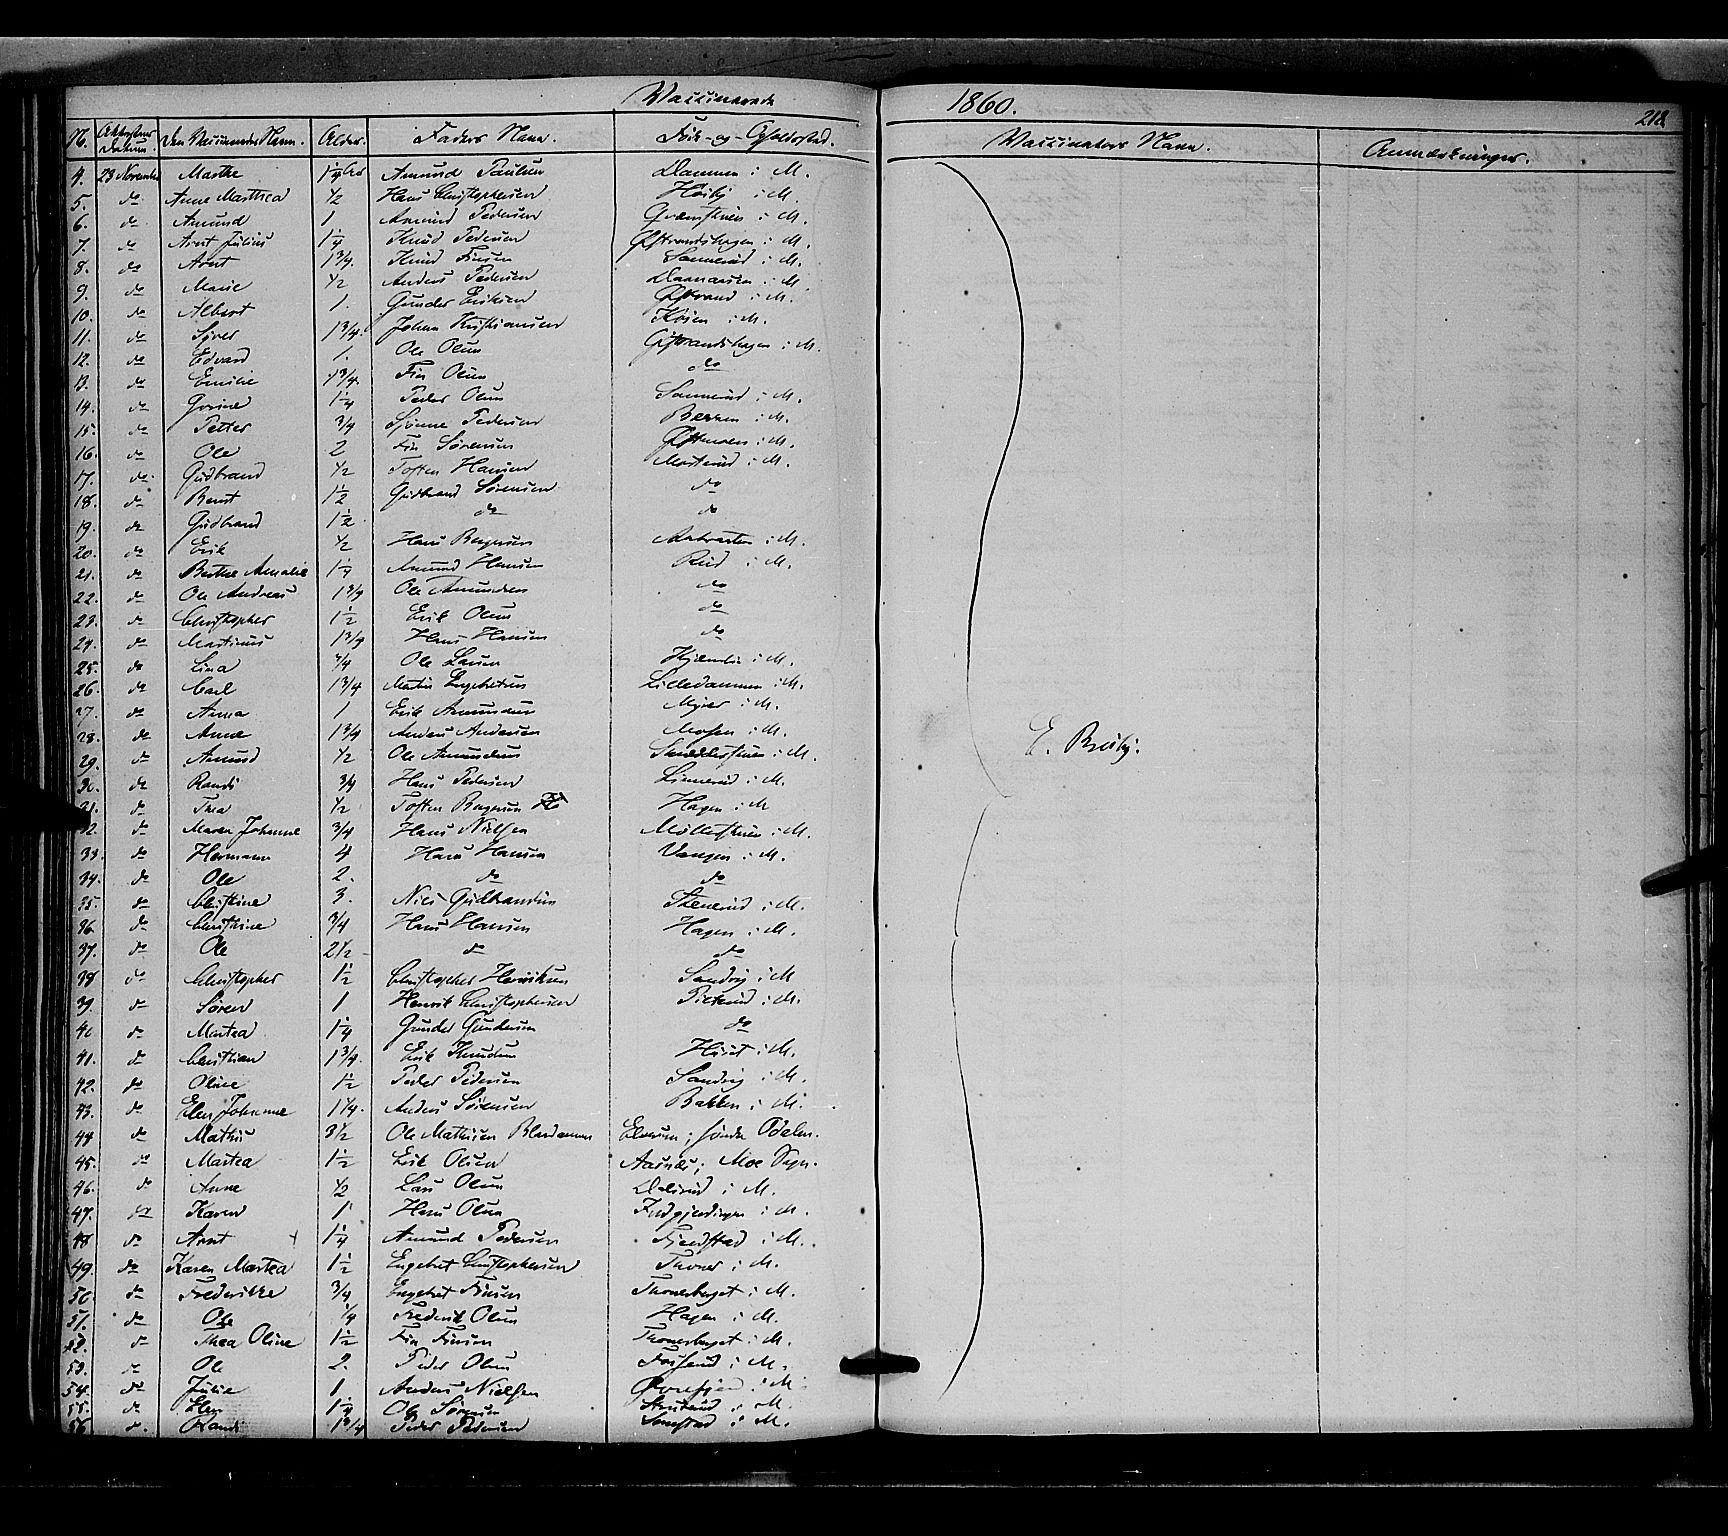 Vaccinerede 1860. 218
N. Attestens Datum. Den Vaccineredes Navn. Alder. Faders Navn. Føde- og Opholdssted. Vaccinators Navn. Anmærkninger.
4. 23 November Marthe 1 1/4 Aar Amund Paulsen Dammen i M.
5. do Anne Marthea 1/2 Hans Christophersen Høiby i M.
6. do Amund 1 Amund Pedersen i M.
7. do Arnt Julius 1 1/4 Knud Pedersen Østrandshagen i M.
8. do Arnt 1 3/4. Knud Finsen Sannerud i M.
9. do Marie 1/2 Anders Pedersen i M.
10. do Albert 1. Gunder Eriksen Østrand i M.
11. do Syver 1 3/4. Johan Kristiansen i M.
12. do Edvard 1. Ole Olsen Østrandshagen i M.
13. do Emilie 1 3/4. Fin Olsen do
14. do Grine 1 1/4 Peder Olsen Sannerud i M.
15. do Petter 3/4 Pedersen Berren i M.
16. do Ole 2 Fin Sørensen i M.
17. do Gudbrand 1/2 Tosten Hansen Morterud i M.
18. do Bernt 1 1/2 Gudbrand Sørensen do
19. do Gudbrand 1 1/2 do do
20. do Erik 1/2 Hans Bergersen i M.
21. do Berthe Amalie 1 1/4 Amund Hansen Rud i M.
22. do Ole Andreas 1 3/4 Ole Amundsen do
23. do Christopher 1 1/2 Erik Olsen do
24. do Martinus 1 3/4 Hans Hansen do
25. do Lina Ole Larsen Kjærnli i M.
26. do Carl 1 3/4 Martin Engebretsen Lilledammen i M.
27. do Anna 1 Erik Amundsen Myrer i M.
28. do Anne 1 3/4 Anders Andersen Mosen i M.
29. do Amund 1/2 Ole Amundsen i M. E. Braaby.
30. do Randi 3/4 Hans Pedersen Linnerud i M.
31. do Thea 1/2 Tosten Bergersen Hagen i M
32. do Maren Johanne 3/4 Hans Nielsen Møllerstuen i M.
33. do Hermann 4 Hans Hansen Vangen i M.
34. do Ole 2. do do
35. do Christine 3. Niels Gudbrandsen Stenerud i M.
36. do Christine 3/4 Hans Hansen Hagen i M.
37. do Ole 2 1/2 do do
38 do Christopher 1 1/2 Christopher Henriksen Sandvig i M
39. do Søren 1 Henrik Christophersen Pickerud i M.
40 do Martea 1 1/4 Gunder Gundersen do
41. do Christian 1 3/4. Erik Knudsen Huset i M.
42. do Oline 1 1/2 Peder Pedersen Sandvig i M.
43. do Elen Johanne 1 1/4. Anders Sørensen Bakken i M.
44. do Mathis 3 1/2 Ole Mathisen Elverum; søndre Odalen.
45. do Martea 1 1/2 Erik Olsen Aasnæs; Moe Sogn.
46. do Anne 1/2 Lars Olsen i M.
47. do Karen 1 Hans Olsen i M.
48 do Arnt 1 1/4 Amund Pedersen Fjeldstad i M.
49. do Karen Martea 1 1/2 Engebret Christophersen Thorner i M.
50. do Frederikke 3/4 Engebret Finsen Thonerberget i M.
51. do Ole 1/4 Frederik Olsen Hagen i M.
52. do Thea Oline 1 1/2 Fin Finsen Thonerberget i M.
53. do Ole 2. Peder Olsen i M.
54. do Julie 1 Anders Nielsen i M
55. do Elen 1 1/4 Ole Sørensen i M.
56 do. Randi 1 3/4 Peder Pedersen Semstad i M.